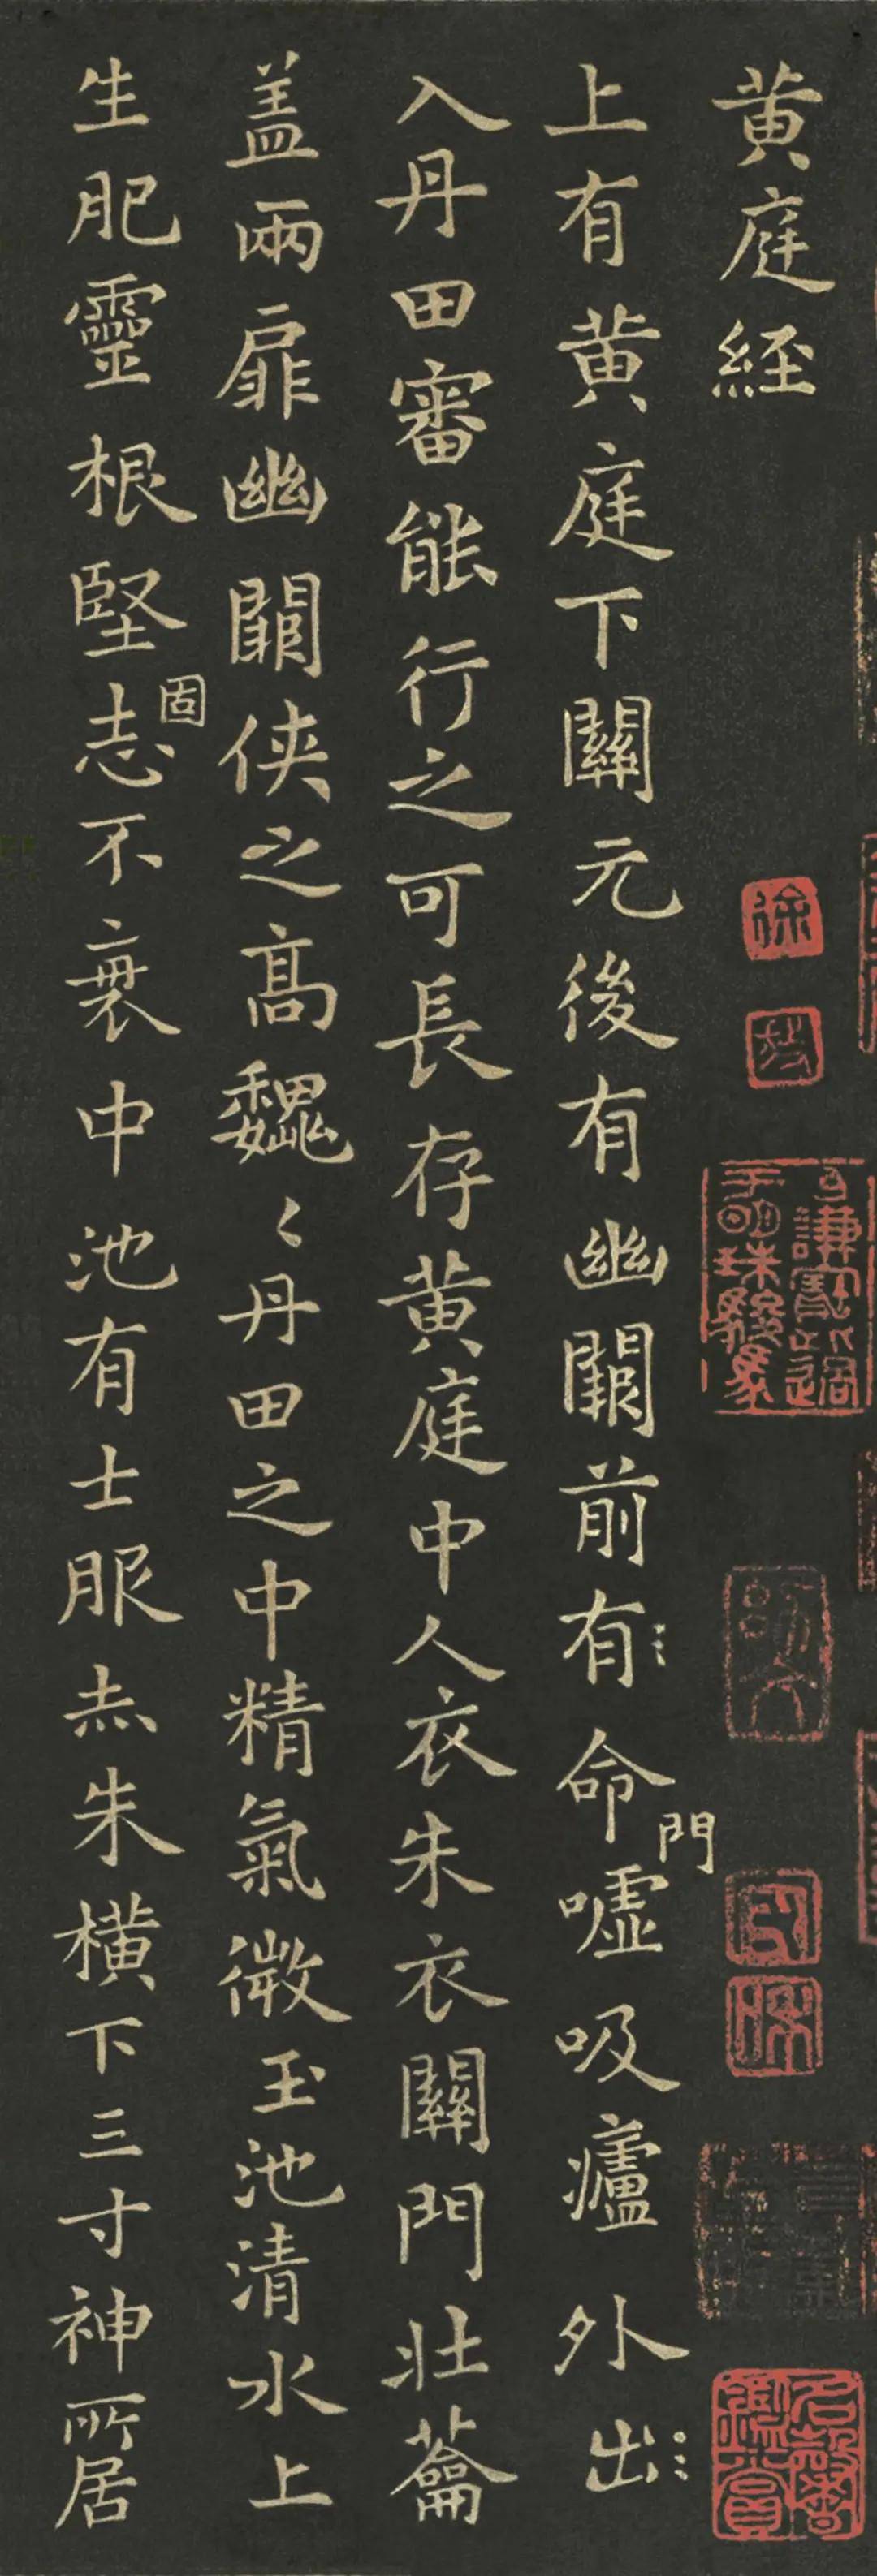 黄庭経
上有黄庭下關元後有幽闕前有命門嘘吸廬外出
入丹田審能行之可長存黄庭中人衣朱衣關門壯蘥
盖兩扉幽闕俠之高巍〻丹田之中精氣微玉池清水上
生肥靈根堅固志不衰中池有士服赤朱橫下三寸神所居
徐